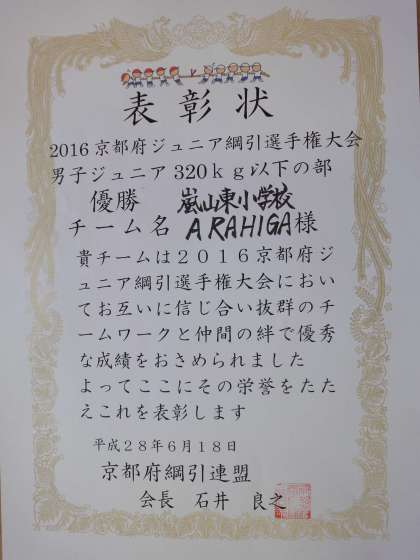 表彰状
2016京都府ジュニア綱引選手権大会
男子ジュニア320kg以下の部
優勝 嵐山東小学校
チーム名 ARAHIGA様
貴チームは2016京都府ジ
ュニア綱引選手権大会におい
てお互いに信じ合い抜群のチ
ームワークと仲間の絆で優秀
な成績をおさめられました
よってここにその栄誉をたた
えこれを表彰します
平成28年6月18日
京都府綱引連盟
会長 石井 良之